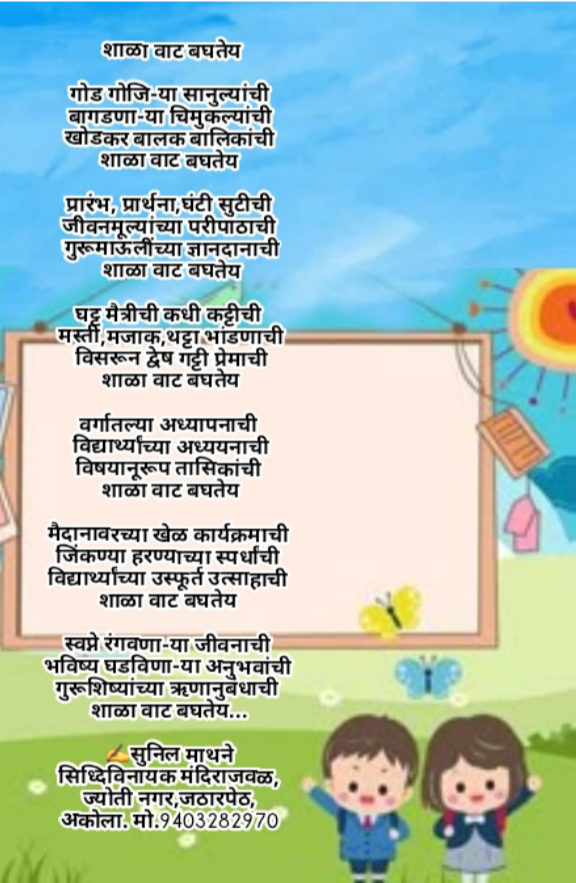 शाळा वाट बघतेय
गोड गोजि-या सानुल्यांची
बागडणा-या चिमुकल्यांची
खोडकर बालक बालिकांची
शाळा वाट बघतेय
प्रारंभ, प्रार्थना,घंटी सुटीची
जीवनमूल्यांच्या परीपाठाची
गुरूमाऊलींच्या ज्ञानदानाची
शाळा वाट बघतेय
घट्ट मैत्रीची कधी कट्टीची
मस्ती,मजाक,थट्टा भांडणाची
विसरून द्वेष गट्टी प्रेमाची
शाळा वाट बघतेय
वर्गातल्या अध्यापनाची
विद्यार्थ्यांच्या अध्ययनाची
विषयानूरूप तासिकांची
शाळा वाट बघतेय
मैदानावरच्या खेळ कार्यक्रमाची
जिंकण्या हरण्याच्या स्पर्धांची
विद्यार्थ्यांच्या उस्फूर्त उत्साहाची
शाळा वाट बघतेय
स्वप्ने रंगवणा-या जीवनाची
भविष्य घडविणा-या अनुभवांची
गुरूशिष्यांच्या ऋणानुबंधाची
शाळा वाट बघतेय...
✍️सुनिल माथने
सिध्दिविनायक मंदिराजवळ,
ज्योती नगर,जठारपेठ,
अकोला. मो.9403282970